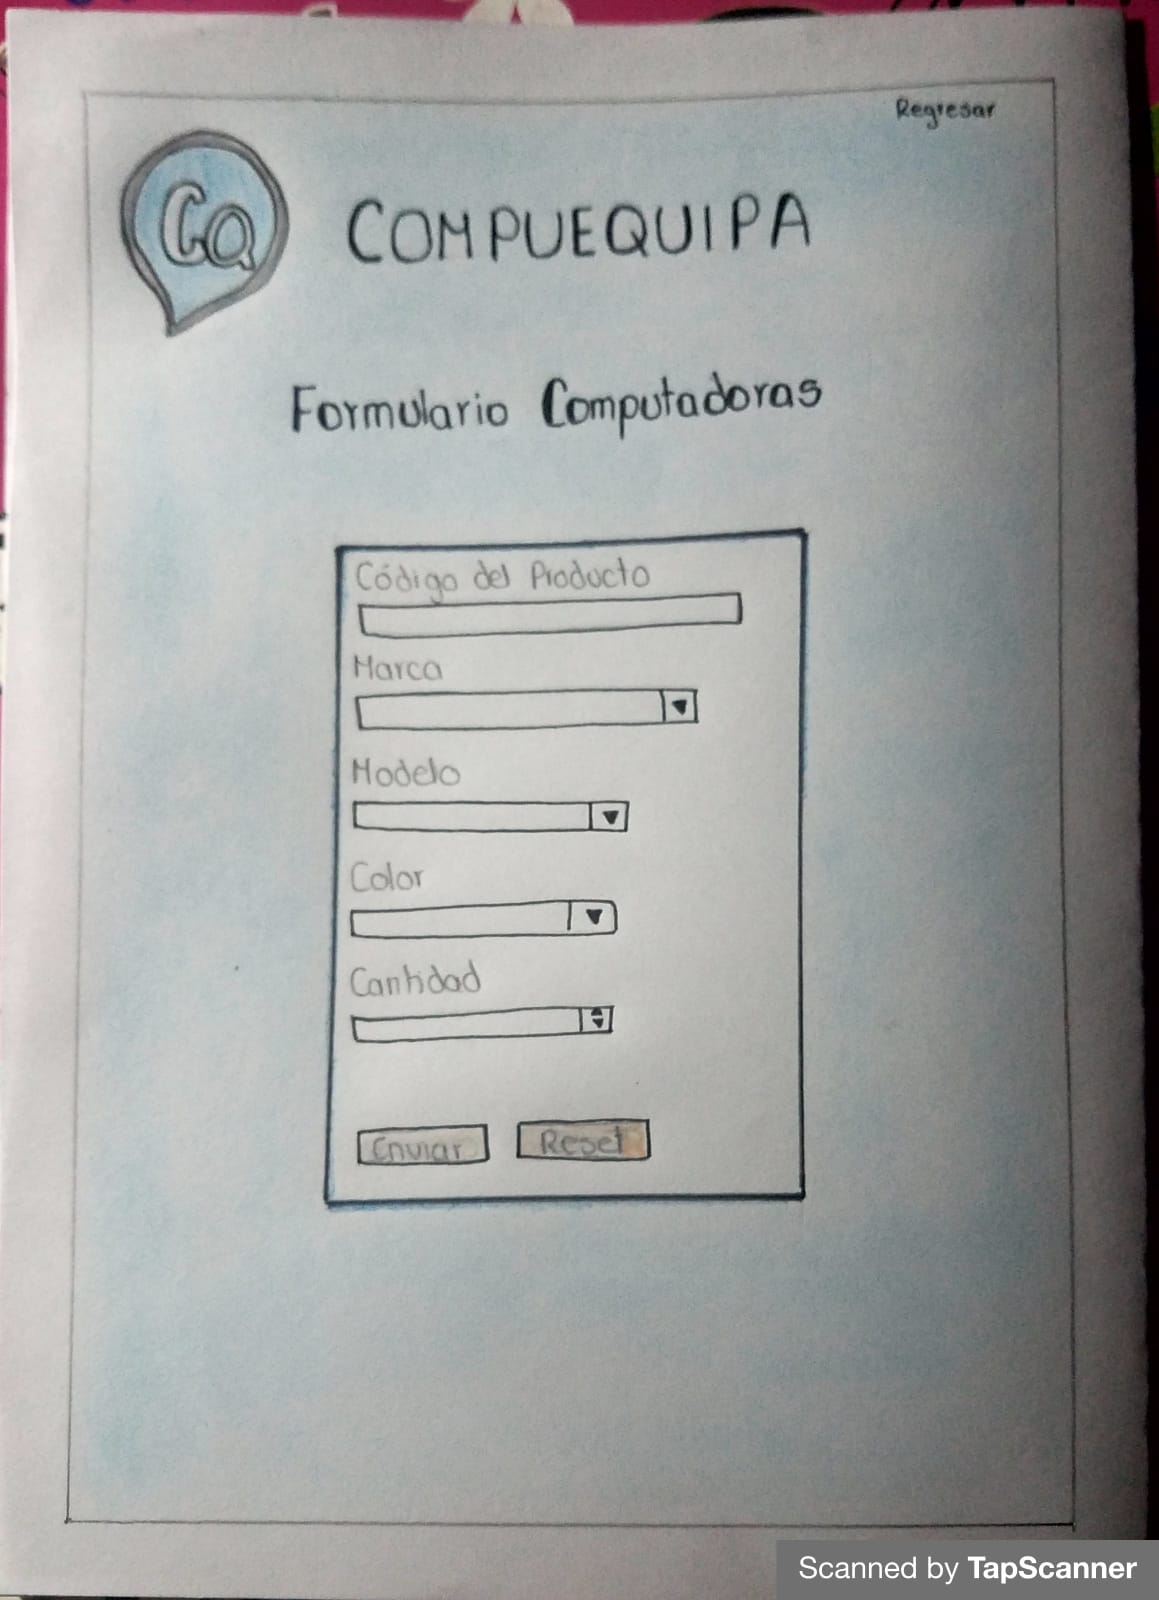 Regresar
CQ
COMPUEQUIPA
Formulario Computadoras
Código del Producto
Marca
Modelo
Color
Cantidad
Enviar Reset
Scanned by TapScanner